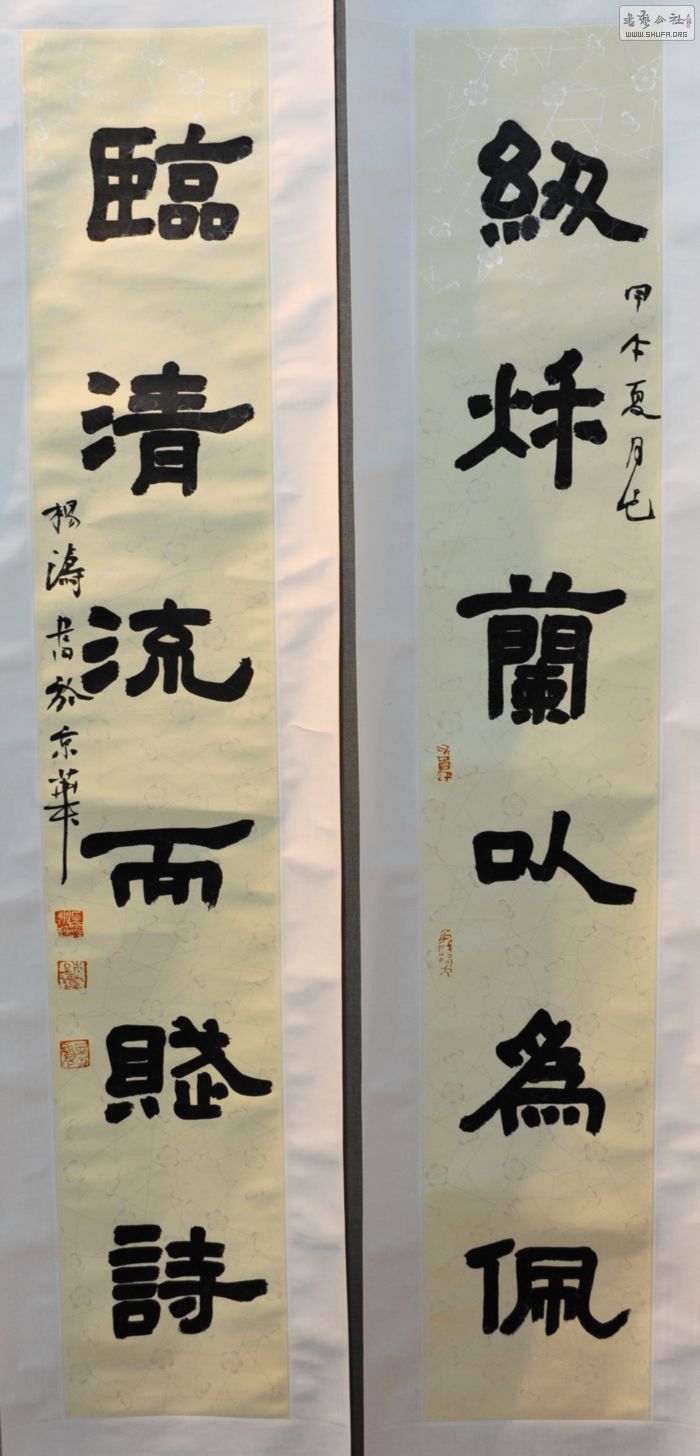 書藝公社
WWW.SHUFA.ORG
紉秌蘭以爲佩
甲午夏月
臨清流而賦詩
楊濤書於京華